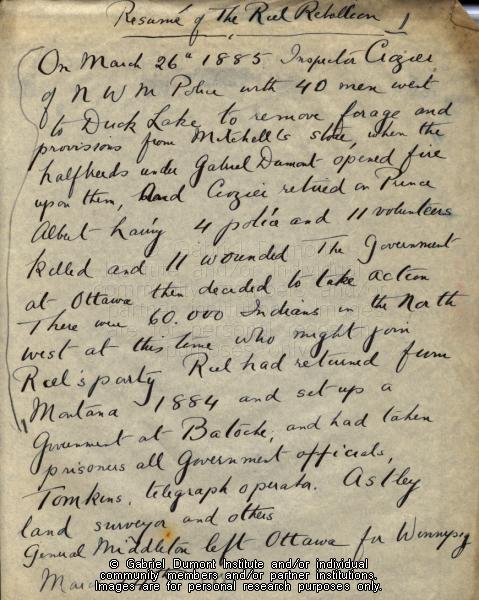 Resumé of The Riel Rebelleon 1
On March 26th 1885 Inspector Crozier
of N W M Police with 40 men went
to Duck Lake to remove forage and
provissons from Mitchell's store, when the
halfbreeds under Gabriel Dumont opened fire
upon them, and Crozier retired on Prince
Albert having 4 police and 11 volunteers
killed and 11 wounded The Government
at Ottawa then decided to take action
There were 60.000 Indians in the North
west at this time who might join
Riel's party Riel had returned from
Montana 1884 and set up a
Government at Batoche, and had taken
prisoners all Government officials,
Tomkins, telegraph operator. Astley
land surveyor and others
General Middleton left Ottawa for Winnipeg
March
© Gabriel Dumont Institute and/or individual
community members and/or partner institutions.
Images are for personal research purposes only.